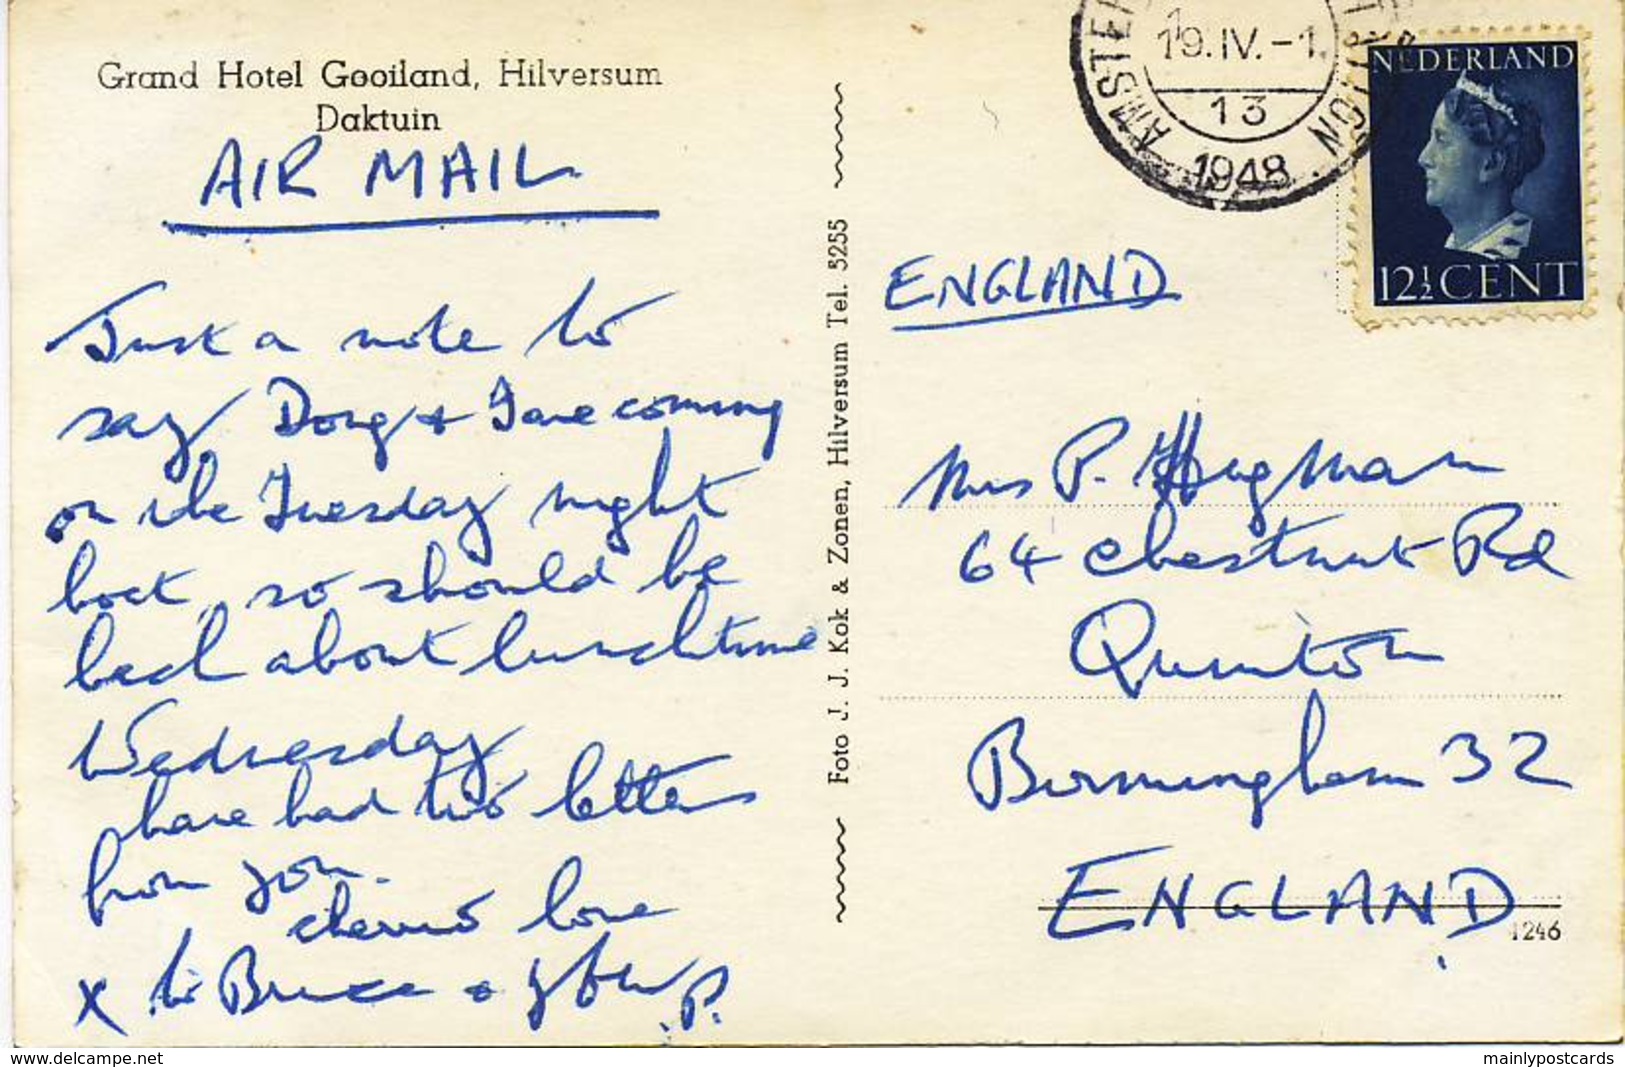 Grand Hotel Gooiland, Hilversum
Daktuin
AIR MAIL
Just a note to
say, Doug + Jane coming
on the Tuesday night
boat, so should be
back about lunchtime
Wednesday
have had two letters
from you.
cheerio love
X to Bruce +
P.
Foto J. J. Kok & Zonen, Hilversum Tel. 5255
19.IV.-1
13
1948
NEDERLAND
12½ CENT
ENGLAND
Mrs P. Hugman
64 Chestnut Rd
Quinton
Birmingham 32
ENGLAND
1246
www.delcampe.net
mainlypostcards